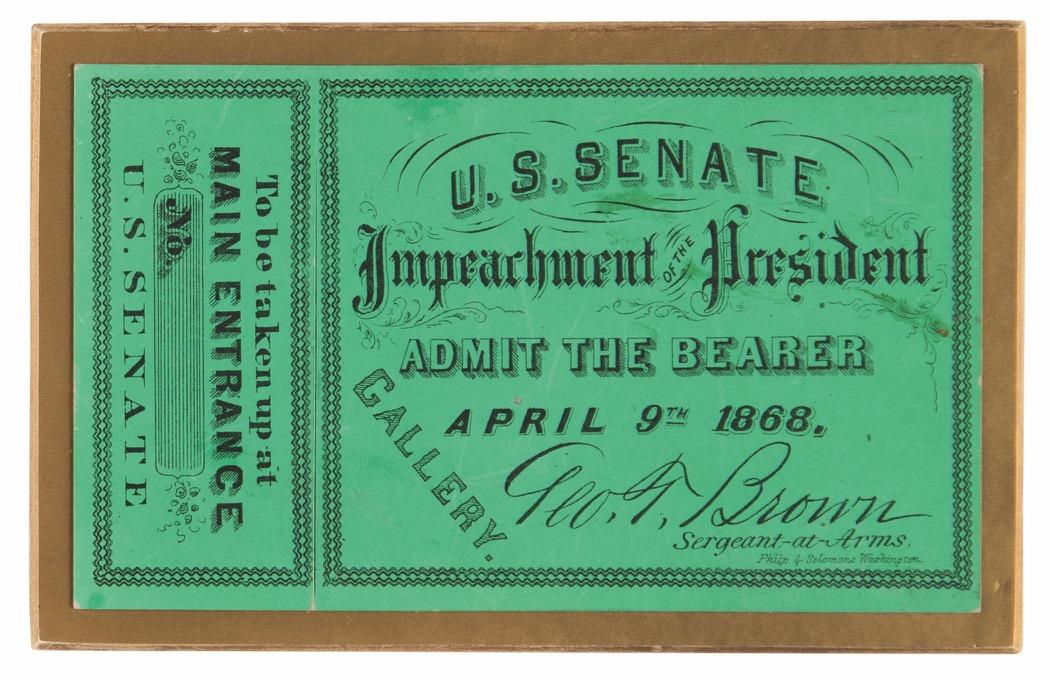 To be taken up at
MAIN ENTRANCE
No.
U.S. SENATE
U.S. SENATE
Impeachment OF THE President
ADMIT THE BEARER
APRIL 9TH 1868.
GALLERY.
Geo. T. Brown
Sergeant-at-Arms.
Philp & Solomons Washington.